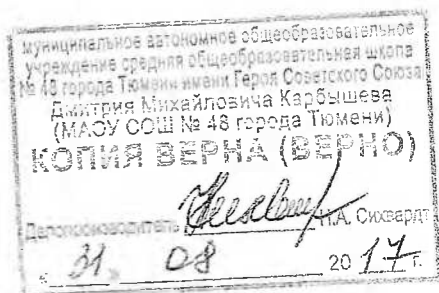 муниципальное автономное общеобразовательное
учреждение средняя общеобразовательная школа
№ 48 города Тюмени имени Героя Советского Союза
Дмитрия Михайловича Карбышева
(МАОУ СОШ № 48 города Тюмени)
КОПИЯ ВЕРНА (ВЕРНО)
Делопроизводитель Н.А. Сихвардт
« 31 » 08 2017 г.